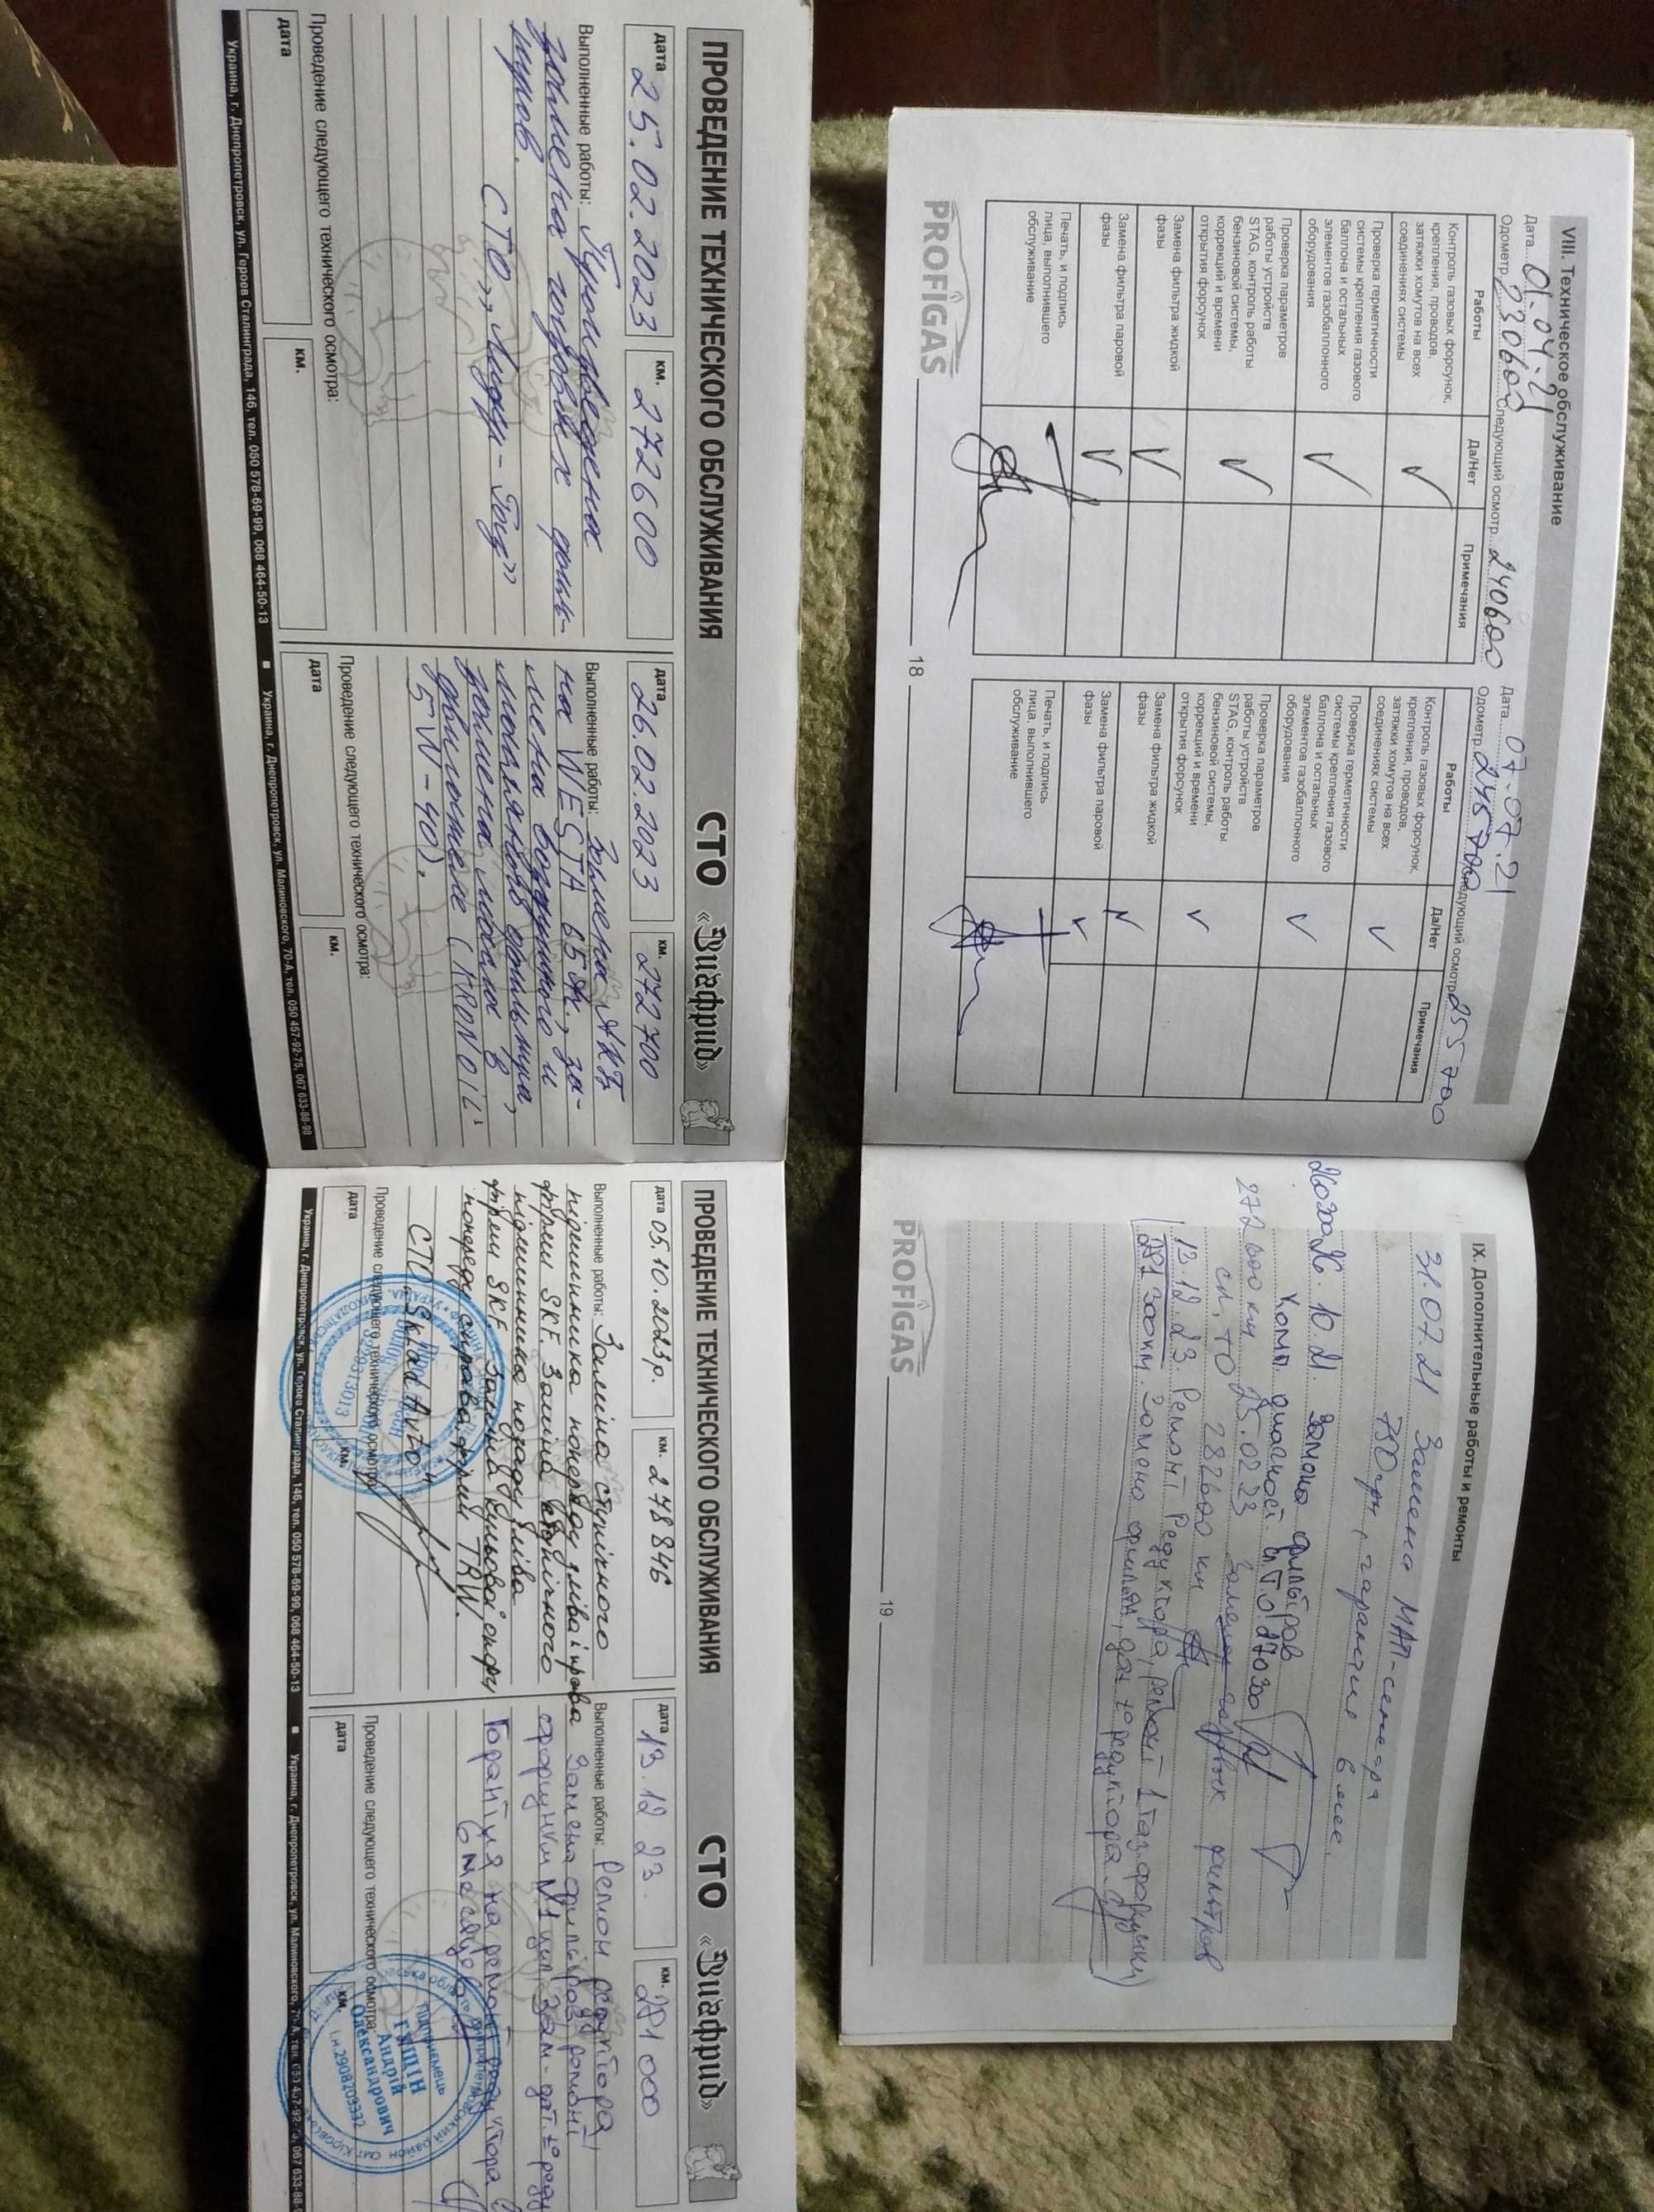 VIII. Техническое обслуживание
Дата 01.04.21
Одометр 230600 Следующий осмотр 240600
Работы Да/Нет Примечания
Контроль газовых форсунок,
крепления, проводов,
затяжки хомутов на всех
соединениях системы
Проверка герметичности
системы крепления газового
баллона и остальных
элементов газобаллонного
оборудования
Проверка параметров
работы устройств
STAG, контроль работы
бензиновой системы,
коррекций и времени
открытия форсунок
Замена фильтра жидкой
фазы
Замена фильтра паровой
фазы
Печать, и подпись
лица, выполнившего
обслуживание
Дата 07.07.21
Одометр 245700 Следующий осмотр 255700
Работы Да/Нет Примечания
Контроль газовых форсунок,
крепления, проводов,
затяжки хомутов на всех
соединениях системы
Проверка герметичности
системы крепления газового
баллона и остальных
элементов газобаллонного
оборудования
Проверка параметров
работы устройств
STAG, контроль работы
бензиновой системы,
коррекций и времени
открытия форсунок
Замена фильтра жидкой
фазы
Замена фильтра паровой
фазы
Печать, и подпись
лица, выполнившего
обслуживание
PROFIGAS
18
IX. Дополнительные работы и ремонты
31.07.21 Замена МАП-сенсора
750грн, гарантия 6 мес.
26.10.21. Замена фильтров
Комп. диагност.
272600 км 25.02.23 Замена газовых фильтров
сл, ТО 282600 км
13.12.23. Ремонт Редуктора, ремонт 1 газ.форсунки
281300км. Замена фильтр, дат t° редуктора
PROFIGAS
19
ПРОВЕДЕНИЕ ТЕХНИЧЕСКОГО ОБСЛУЖИВАНИЯ СТО «Зиафрид»
дата 25.02.2023 км. 272600
Выполненные работы: Произведена
замена газовых филь-
тров.
СТО „Лидер-Газ"
Проведение следующего технического осмотра:
дата км.
дата 26.02.2023 км. 272700
Выполненные работы: Замена АКБ
на WESTA 65 Ач., за-
мена воздушного и
масляного фильтра,
замена масла в
двигателе (KRONOIL
5W-40).
Проведение следующего технического осмотра:
дата км.
Украина, г. Днепропетровск, ул. Героев Сталинграда, 146, тел. 050 578-69-99, 068 464-50-13 ■ Украина, г. Днепропетровск, ул. Малиновского, 70-А, тел. 050 457-92-75, 067 633-88-98
ПРОВЕДЕНИЕ ТЕХНИЧЕСКОГО ОБСЛУЖИВАНИЯ СТО «Зиафрид»
дата 05.10.2023р. км. 278 846
Выполненные работы: Заміна ступічного
підшипника попереду зліва і права
фірми SKF. Заміна ступічного
підшипника позаду зліва
фірми SKF. Заміна кульової опори
попереду справа фірми TRW.
СТО „Sklad Avto"
Проведение следующего технического осмотра:
дата км.
дата 13.12 23. км. 281 000
Выполненные работы: Ремон редуктора,
Замена фильтров, ремонт
форсунки №1 цил. Зам-дат. t° ред
Гарантия на ремонт редуктора
6 месяцев
Проведение следующего технического осмотра:
дата км.
підприємець
ГУЩІН
Андрій
Олександрович
і.н.2908203332
Украина, г. Днепропетровск, ул. Героев Сталинграда, 146, тел. 050 578-69-99, 068 464-50-13 ■ Украина, г. Днепропетровск, ул. Малиновского, 70-А, тел. 050 457-92-75, 067 633-88-9